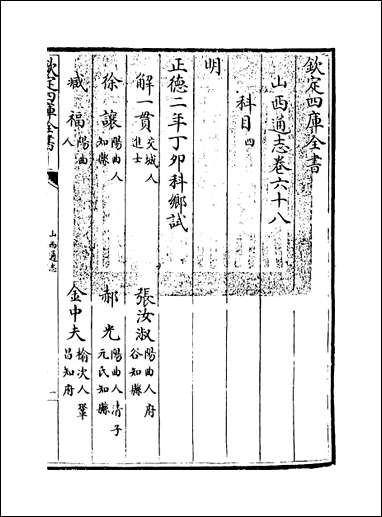 欽定四庫全書
山西通志卷六十八
科目四
明
正德二年丁卯科鄉試
解一貫交城人進士
張汝淑陽曲人府谷知縣
徐讓陽曲人知縣
郝光陽曲人清子元氏知縣
臧福陽曲人
金中夫榆次人鞏昌知府
欽定四庫全書
山西通志
一